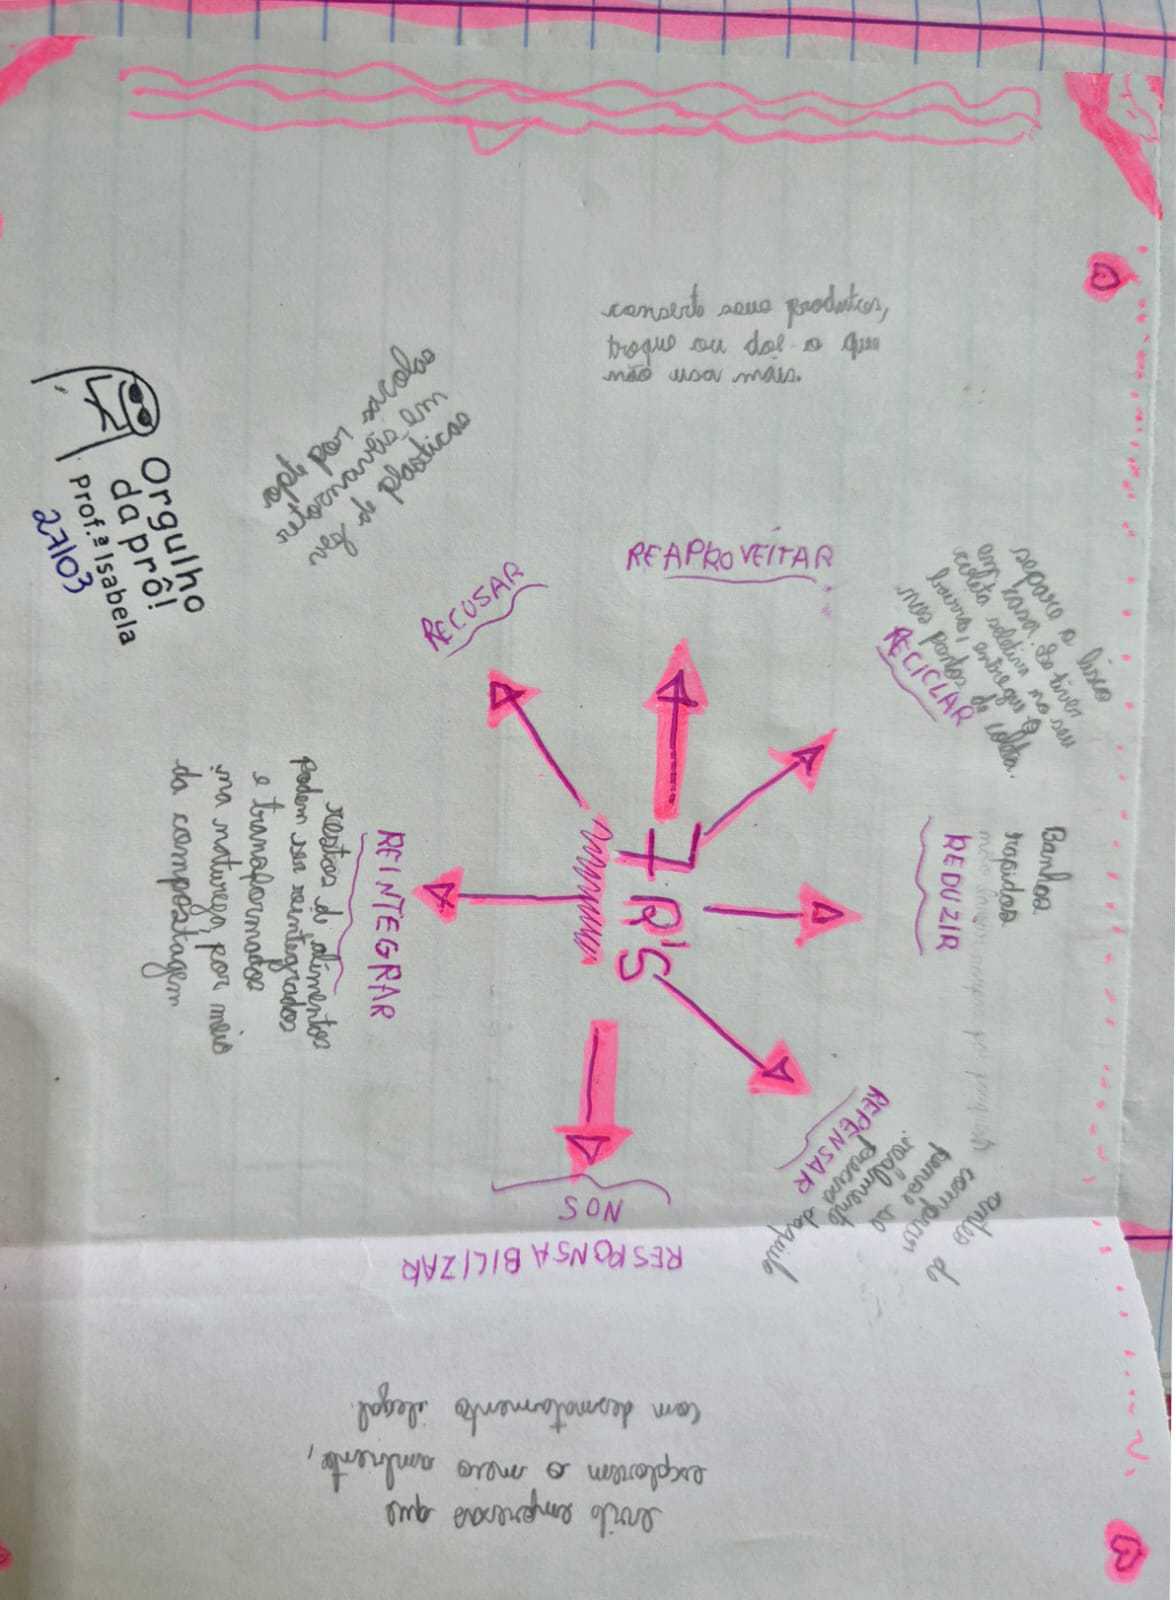 7 R'S
REAPROVEITAR
conserte seus produtos,
troque ou doe o que
não usa mais.
RECICLAR
separe o lixo
em casa. Se tiver
coleta seletiva no seu
bairro, entregue o
nos pontos de coleta.
REDUZIR
Banhos
rapidos
REPENSAR
antes de
comprar
pense se
realmente
precisa daquilo
NOS
RESPONSABILIZAR
evite empresas que
explorem o meio ambiente,
com desmatamento ilegal.
REINTEGRAR
restos d alimentos
podem ser reintegrados
e transformados
na natureza, por meio
da compostagem
RECUSAR
opte por sacolas
retornaveis em
de plásticas
Orgulho
da prô!
prof.ª Isabela
27/03